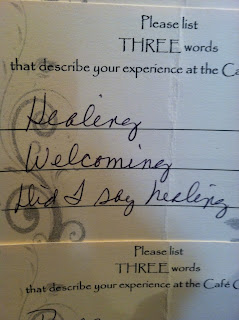 Please list
THREE words
that describe your experience at the Ca
Healing
Welcoming
Did I say healing
Please list
THREE words
that describe your experience at the Café C